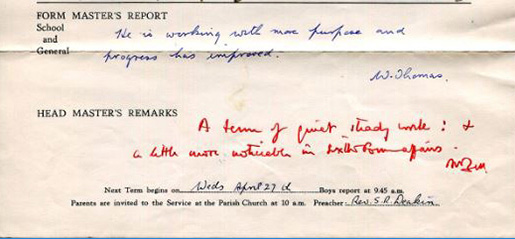 FORM MASTER'S REPORT
School and General
He is working with more purpose and
progress has improved.
W. Thomas.
HEAD MASTER'S REMARKS
A term of quiet, steady work: &
a little more noticeable in Sixth Form affairs.
Next Term begins on Weds April 27th Boys report at 9.45 a.m.
Parents are invited to the Service at the Parish Church at 10 a.m. Preacher: Rev. S.R. Deakin